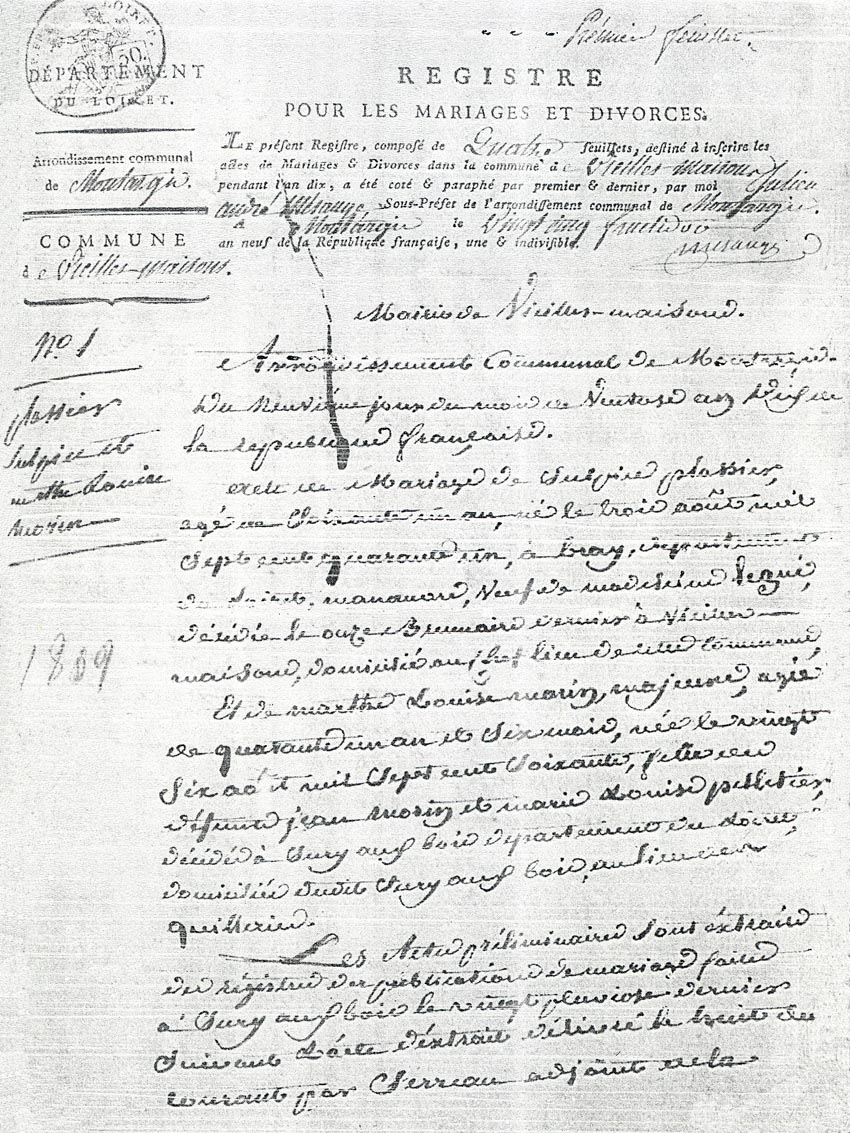 Prémier feuillet.
LOIRET.
50.
DÉPARTEMENT
DU LOIRET.
Arrondissement communal
de Montargis.
COMMUNE
de Vieilles-maisons.
REGISTRE
POUR LES MARIAGES ET DIVORCES.
LE présent Registre, composé de Quatre feuillets, destiné à inscrire les
actes de Mariages & Divorces dans la commune de Vieilles-maisons
pendant l'an dix, a été coté & paraphé par premier & dernier, par moi Julien
andré Mésange Sous-Préfet de l'arrondissement communal de Montargis.
A Montargis le Vingt cinq fructidor
an neuf de la République française, une & indivisible.
Mésange
N.o 1
plassier
Sulpice et
marthe Louise
Morin
1809
Mairie de Vieilles-maisons.
Arrondissement Communal de Montargis.
Du Neuvième jour du mois de Ventose an Dix de
la republique française.
acte de Mariage de Sulpice plassier,
agé de Soixante un an, né le trois août mil
Sept cent quarante un, à bray, département
du Loiret, manœuvre, Veuf de madeleine
décédée le onze Brumaire dernier à Vieilles-
maisons, domicilié au chef lieu de cette Commune,
Et de marthe Louise morin, majeure, agée
de quarante un an et Six mois, née le vingt
Six août mil Sept cent Soixante, fille de
défunts jean morin et marie Louise pelletier,
décédés à Sury aux bois département du Loiret,
domiciliée dudit Sury aux bois, au lieu des
quilleries.
Les Actes préliminaires Sont éxtraits
des régistres des publications de mariage faites
à Sury aux bois le vingt pluviose dernier
Suivant L'acte d'éxtrait délivré le huit du
courant par Serreau adjoint de la